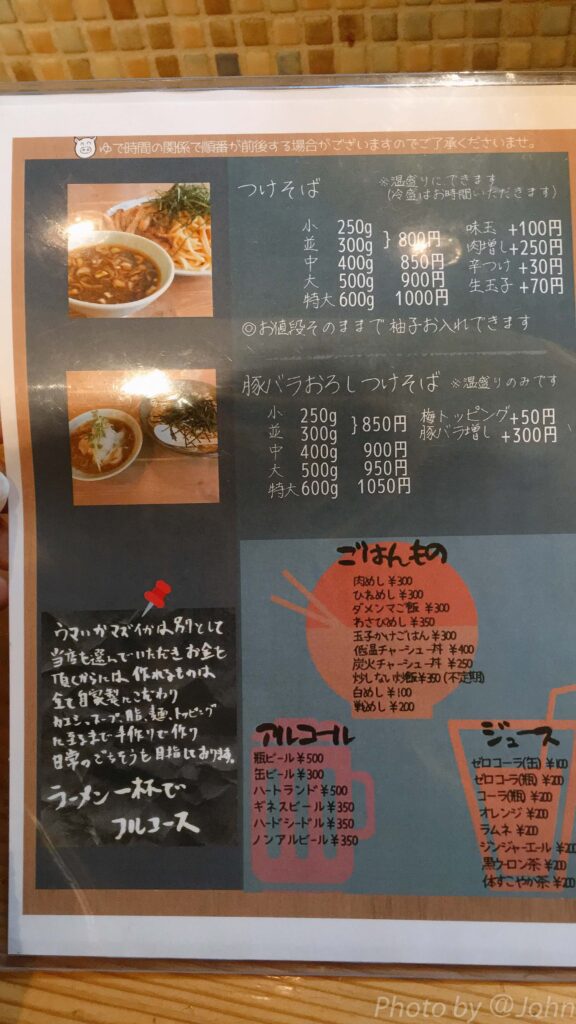 ゆで時間の関係で順番が前後する場合がございますのでご了承くださいませ。
つけそば
※温盛りにできます
(冷盛はお時間いただきます)
小 250g
並 300g } 800円
中 400g 850円
大 500g 900円
特大 600g 1000円
味玉 +100円
肉増し +250円
辛つけ +30円
生玉子 +70円
◎お値段そのままで柚子お入れできます
豚バラおろしつけそば ※温盛りのみです
小 250g
並 300g } 850円
中 400g 900円
大 500g 950円
特大 600g 1050円
梅トッピング +50円
豚バラ増し +300円
ごはんもの
肉めし ¥300
ひねめし ¥300
ダメンマご飯 ¥300
わさびめし ¥350
玉子かけごはん ¥300
低温チャーシュー丼 ¥400
炭火チャーシュー丼 ¥250
炒しない炒飯 ¥350 (不定期)
白めし ¥100
半めし ¥200
ウマいかマズイかは別として
当店を選んでいただきお金を
頂くからには作れるものは
全て自家製にこだわり
カエシ、スープ、脂、麺、トッピング
に至るまで手作りで作り
日常のごちそうを目指しております。
ラーメン一杯で
フルコース
アルコール
瓶ビール ¥500
缶ビール ¥300
ハートランド ¥500
ギネスビール ¥350
ハードシードル ¥350
ノンアルビール ¥350
ジュース
ゼロコーラ(缶) ¥100
ゼロコーラ(瓶) ¥200
コーラ(瓶) ¥200
オレンジ ¥200
ラムネ ¥200
ジンジャーエール ¥200
黒ウーロン茶 ¥200
体すこやか茶 ¥200
Photo by @John